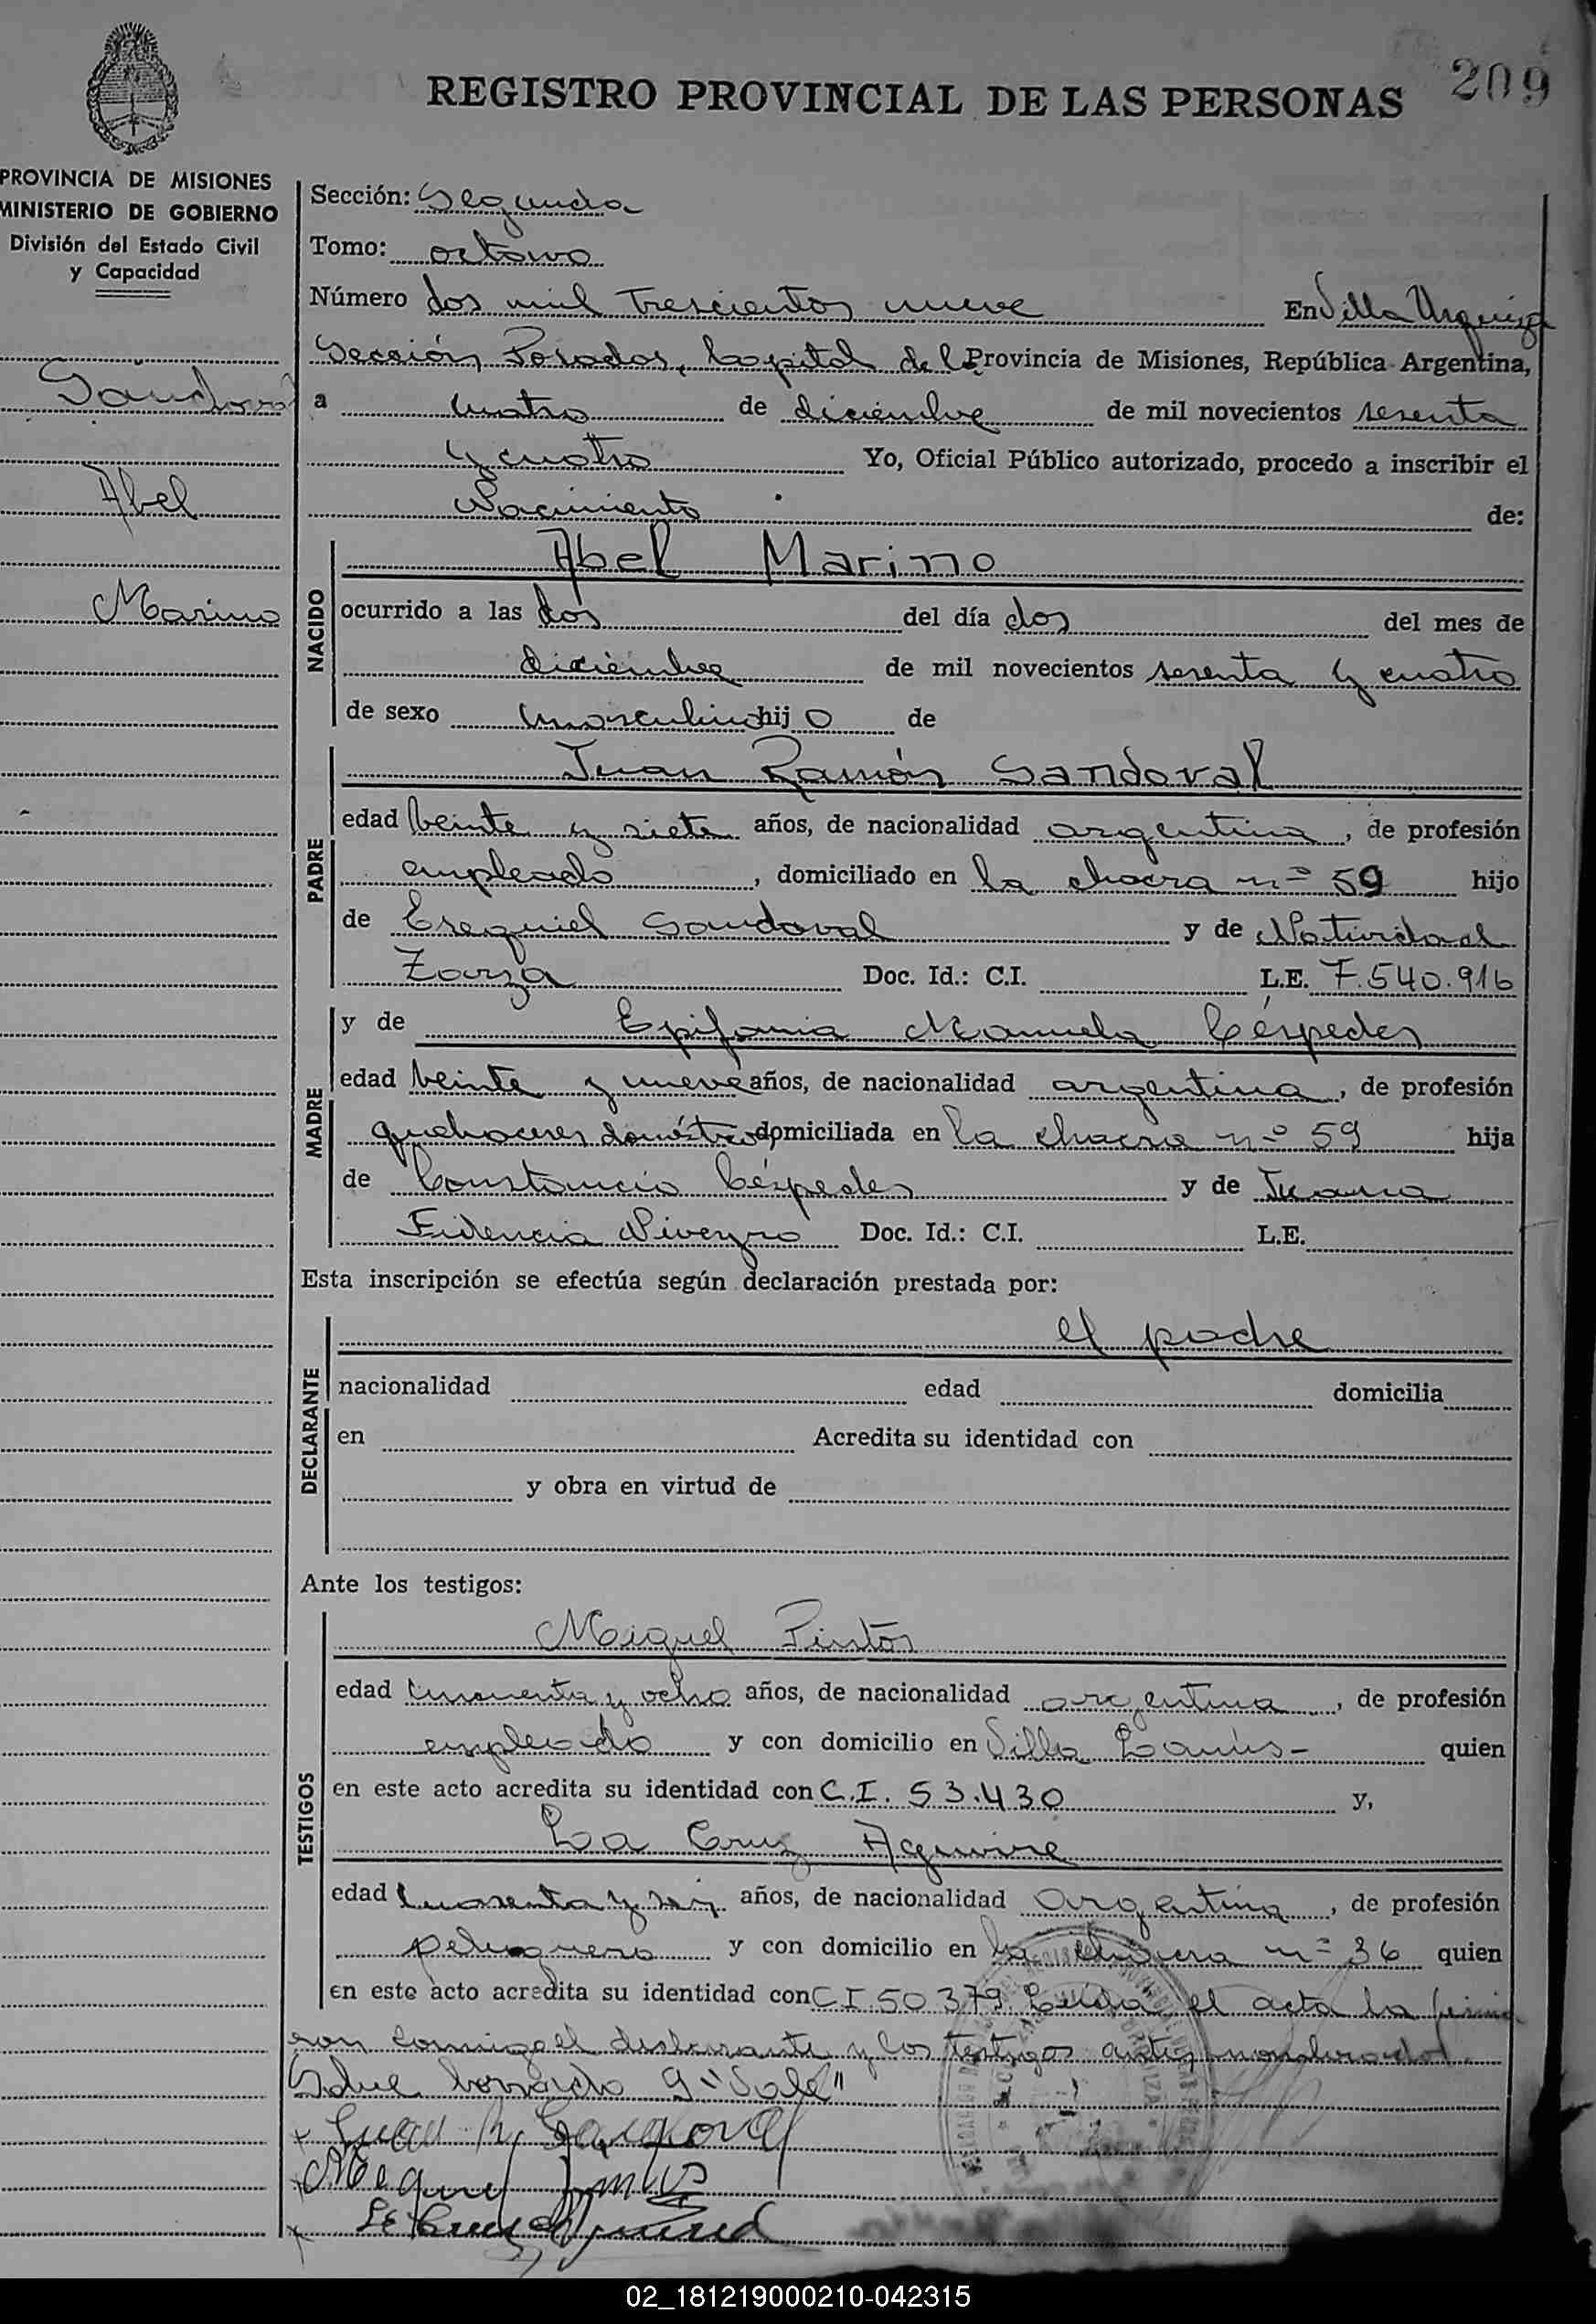 209
REGISTRO PROVINCIAL DE LAS PERSONAS
PROVINCIA DE MISIONES
MINISTERIO DE GOBIERNO
División del Estado Civil
y Capacidad
Sandoval
Abel
Marino
Sección: Segunda
Tomo: octavo
Número dos mil trescientos nueve En Villa Urquiza
Sección Posadas, Capital de la Provincia de Misiones, República Argentina,
a cuatro de diciembre de mil novecientos sesenta
y cuatro Yo, Oficial Público autorizado, procedo a inscribir el
Nacimiento de:
NACIDO
Abel Marino
ocurrido a las dos del día dos del mes de
diciembre de mil novecientos sesenta y cuatro
de sexo masculino hijo de
PADRE
Juan Ramón Sandoval
edad veinte y siete años, de nacionalidad argentina, de profesión
empleado, domiciliado en la chacra nº 59 hijo
de Esequiel Sandoval y de Natividad
Zarza Doc. Id.: C.I. L.E. 7.540.916
MADRE
y de Epifania Manuela Céspedes
edad veinte y nueve años, de nacionalidad argentina, de profesión
quehaceres domésticos domiciliada en la chacra nº 59 hija
de Constancio Céspedes y de Juana
Fidencia Niveyro Doc. Id.: C.I. L.E.
Esta inscripción se efectúa según declaración prestada por:
DECLARANTE
el padre
nacionalidad edad domicilia
en Acredita su identidad con
y obra en virtud de
Ante los testigos:
TESTIGOS
Miguel Pintos
edad cincuenta y ocho años, de nacionalidad argentina, de profesión
empleado y con domicilio en Villa Lanús- quien
en este acto acredita su identidad con C.I. 53.430 y,
La Cruz Aguirre
edad cuarenta y seis años, de nacionalidad argentina, de profesión
peluquero y con domicilio en la chacra nº 36 quien
en este acto acredita su identidad con C I 50379 Leída el acta la firma
ron conmigo el declarante y los testigos antes nombrados.
Sobre borrado 9 "Vale"
x Juan R. Sandoval
x Miguel Pintos
x La Cruz Aguirre
02_181219000210-042315